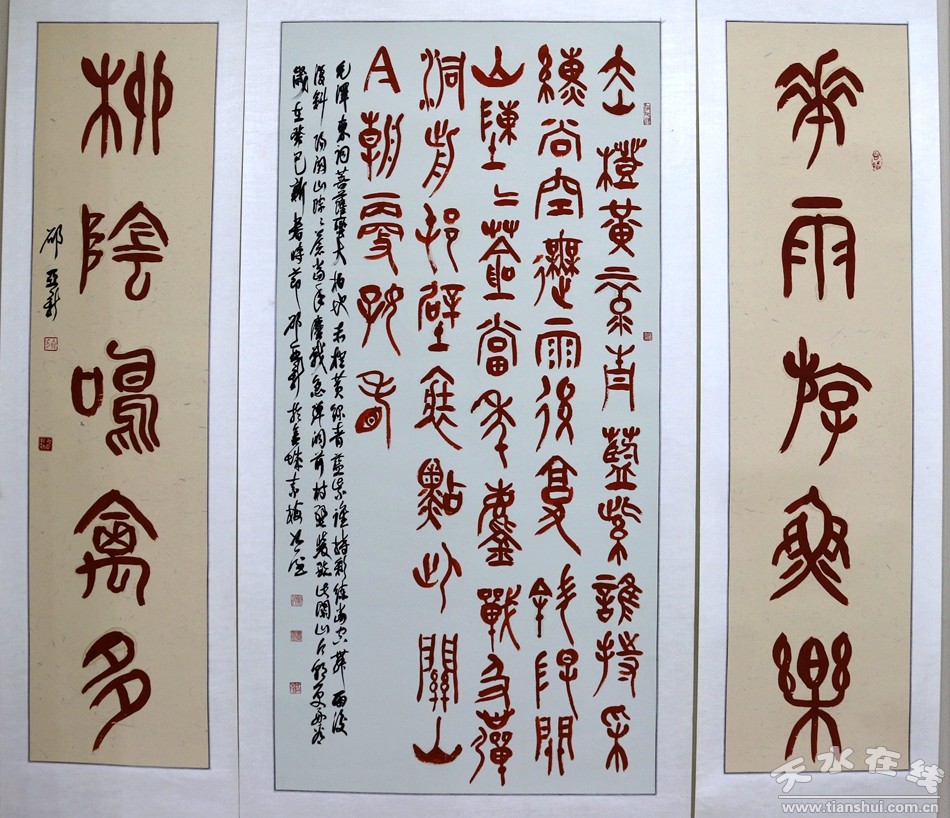 華雨游魚樂
赤橙黃綠青藍紫誰持采
練當空舞雨後復斜陽關
山陣=蒼當年鏖戰急彈
洞前邨壁裝點此關山
今朝更好看
毛澤東詞菩薩蠻大柏地 赤橙黃綠青藍紫誰持彩練當空舞 雨後
復斜陽關山陣=蒼當年鏖戰急彈洞前村壁裝點此關山今朝更好看
歲在癸巳新春時節 邵亞新於
柳陰鳴禽多
邵亞新
天水在线
www.tianshui.com.cn